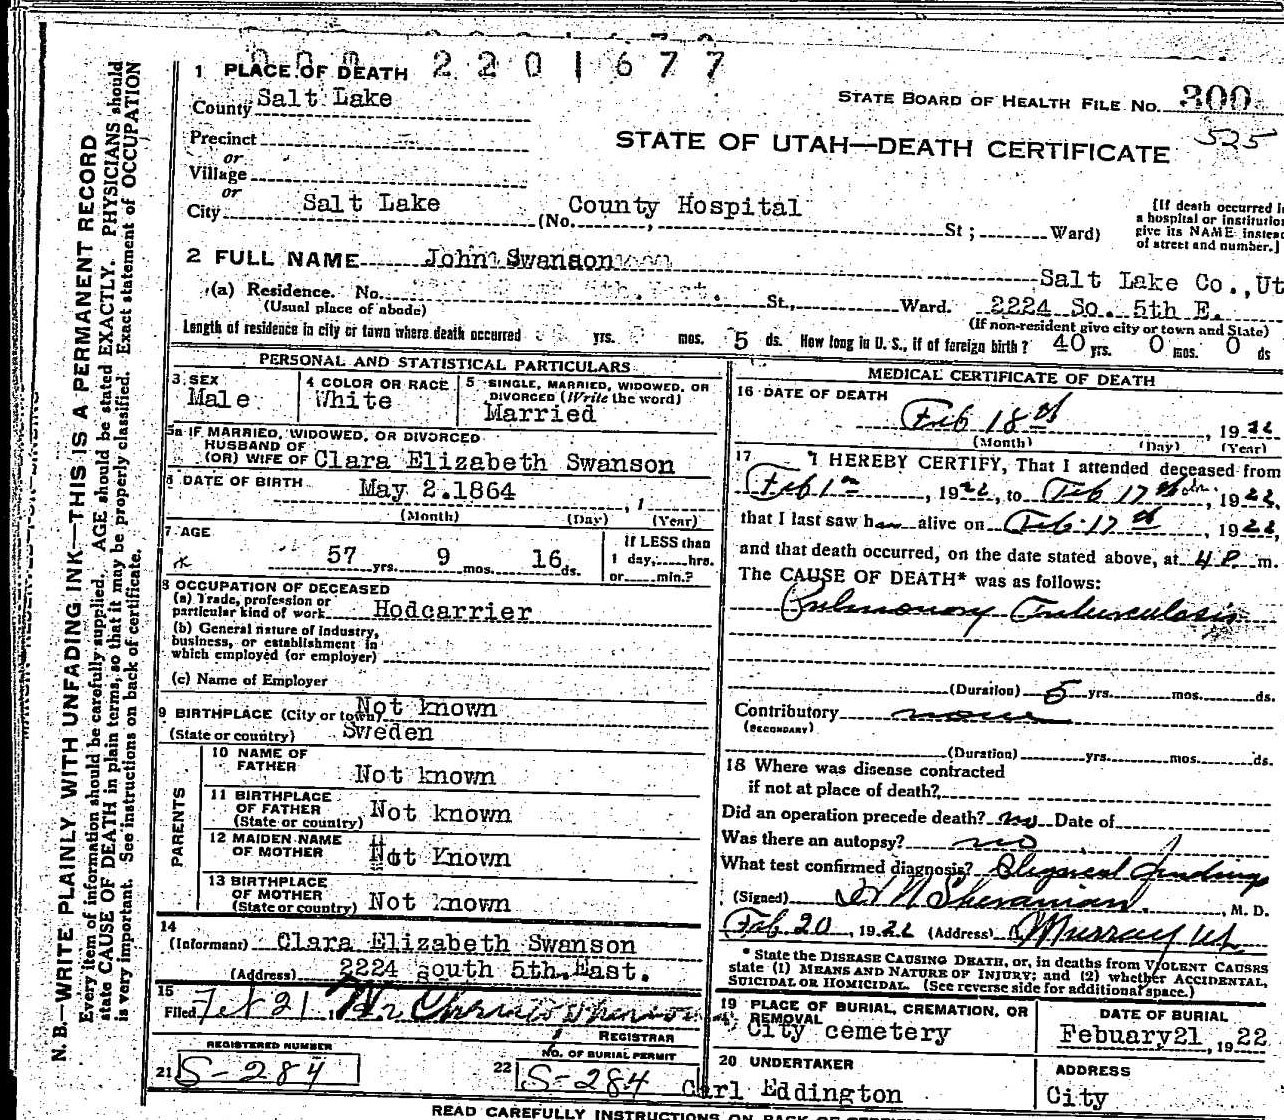 2201677
1 PLACE OF DEATH
County Salt Lake
STATE BOARD OF HEALTH FILE NO. 300
525
Precinct
or
Village
or
City Salt Lake (No. County Hospital St; Ward)
STATE OF UTAH—DEATH CERTIFICATE
[If death occurred in
a hospital or institution
give its NAME instead
of street and number.]
2 FULL NAME John Swanson
Salt Lake Co., Ut
(a) Residence. No. St., Ward. 2224 So. 5th E.
(Usual place of abode)
(If non-resident give city or town and State)
Length of residence in city or town where death occurred yrs. mos. 5 ds. How long in U. S., if of foreign birth? 40 yrs. 0 mos. 0 ds
PERSONAL AND STATISTICAL PARTICULARS
3 SEX
Male
4 COLOR OR RACE
White
5 SINGLE, MARRIED, WIDOWED, OR
DIVORCED (Write the word)
Married
5a IF MARRIED, WIDOWED, OR DIVORCED
HUSBAND OF
(OR) WIFE OF Clara Elizabeth Swanson
6 DATE OF BIRTH May 2.1864 , 1
(Month) (Day) (Year)
7 AGE
57 yrs. 9 mos. 16 ds.
If LESS than
1 day, hrs.
or min.?
8 OCCUPATION OF DECEASED
(a) Trade, profession or
particular kind of work Hodcarrier
(b) General nature of industry,
business, or establishment in
which employed (or employer)
(c) Name of Employer
9 BIRTHPLACE (City or town) Not known
(State or country) Sweden
PARENTS
10 NAME OF
FATHER Not known
11 BIRTHPLACE
OF FATHER
(State or country) Not known
12 MAIDEN NAME
OF MOTHER Not Known
13 BIRTHPLACE
OF MOTHER
(State or country) Not known
14
(Informant) Clara Elizabeth Swanson
(Address) 2224 south 5th.East.
15
Filed Feb 21
REGISTRAR
REGISTERED NUMBER
21 S-284
NO. OF BURIAL PERMIT
22 S-284
MEDICAL CERTIFICATE OF DEATH
16 DATE OF DEATH
Feb 18th , 1922
(Month) (Day) (Year)
17 I HEREBY CERTIFY, That I attended deceased from
Feb 1 , 1922, to Feb 17th , 1922,
that I last saw him alive on Feb 17th , 1922,
and that death occurred, on the date stated above, at 4 P m.
The CAUSE OF DEATH* was as follows:
Pulmonary Tuberculosis
(Duration) 5 yrs. mos. ds.
Contributory none
(SECONDARY)
(Duration) yrs. mos. ds.
18 Where was disease contracted
if not at place of death?
Did an operation precede death? no Date of
Was there an autopsy? no
What test confirmed diagnosis? Physical findings
(Signed) H N Sheranian , M. D.
Feb 20 , 1922 (Address) Murray Ut
* State the DISEASE CAUSING DEATH, or, in deaths from VIOLENT CAUSES
state (1) MEANS AND NATURE OF INJURY; and (2) whether ACCIDENTAL,
SUICIDAL OR HOMICIDAL. (See reverse side for additional space.)
19 PLACE OF BURIAL, CREMATION, OR
REMOVAL
City cemetery
DATE OF BURIAL
Febuary21 , 1922
20 UNDERTAKER
Carl Eddington
ADDRESS
City
N. B.—WRITE PLAINLY WITH UNFADING INK—THIS IS A PERMANENT RECORD
Every item of information should be carefully supplied. AGE should be stated EXACTLY. PHYSICIANS should
state CAUSE OF DEATH in plain terms, so that it may be properly classified. Exact statement of OCCUPATION
is very important. See instructions on back of certificate.
READ CAREFULLY INSTRUCTIONS ON BACK OF